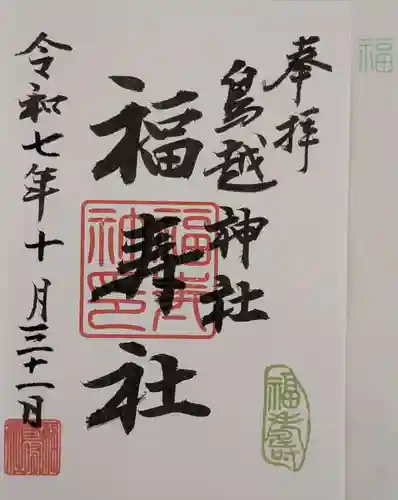 奉拝
鳥越神社
福寿社
令和七年十月三十一日
福寿
福